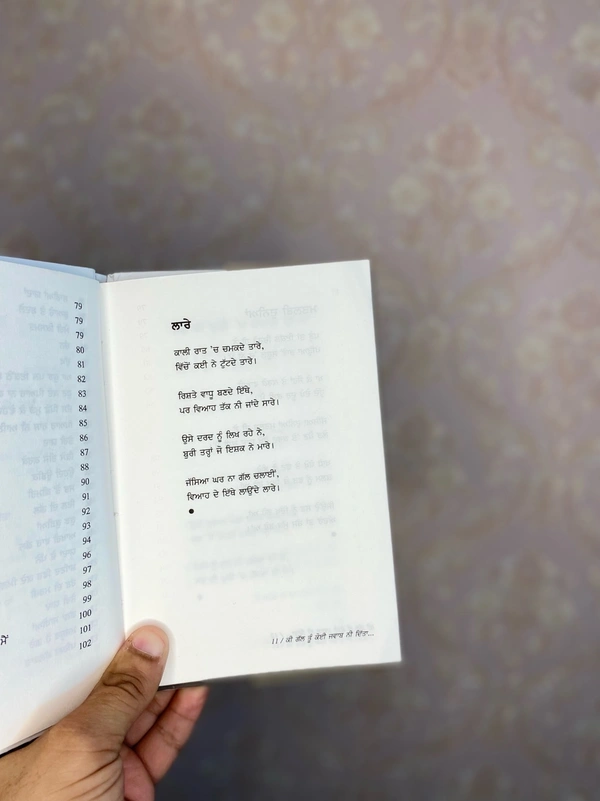 79
79
79
80
81
82
83
84
85
86
87
88
90
91
92
93
94
96
97
98
99
100
101
ਮੈਂ
102
ਲਾਰੇ
ਕਾਲੀ ਰਾਤ 'ਚ ਚਮਕਦੇ ਤਾਰੇ,
ਵਿੱਚੋਂ ਕਈ ਨੇ ਟੁੱਟਦੇ ਤਾਰੇ।
ਰਿਸ਼ਤੇ ਵਾਧੂ ਬਣਦੇ ਇੱਥੇ,
ਪਰ ਵਿਆਹ ਤੱਕ ਨੀ ਜਾਂਦੇ ਸਾਰੇ।
ਉਸੇ ਦਰਦ ਨੂੰ ਲਿਖ ਰਹੇ ਨੇ,
ਬੁਰੀ ਤਰ੍ਹਾਂ ਜੋ ਇਸ਼ਕ ਨੇ ਮਾਰੇ।
ਜੱਸਿਆ ਘਰ ਨਾ ਗੱਲ ਚਲਾਈਂ,
ਵਿਆਹ ਦੇ ਇੱਥੇ ਲਾਉਂਦੇ ਲਾਰੇ।
11 / ਕੀ ਗੱਲ ਤੂੰ ਕੋਈ ਜਵਾਬ ਨੀ ਦਿੱਤਾ...